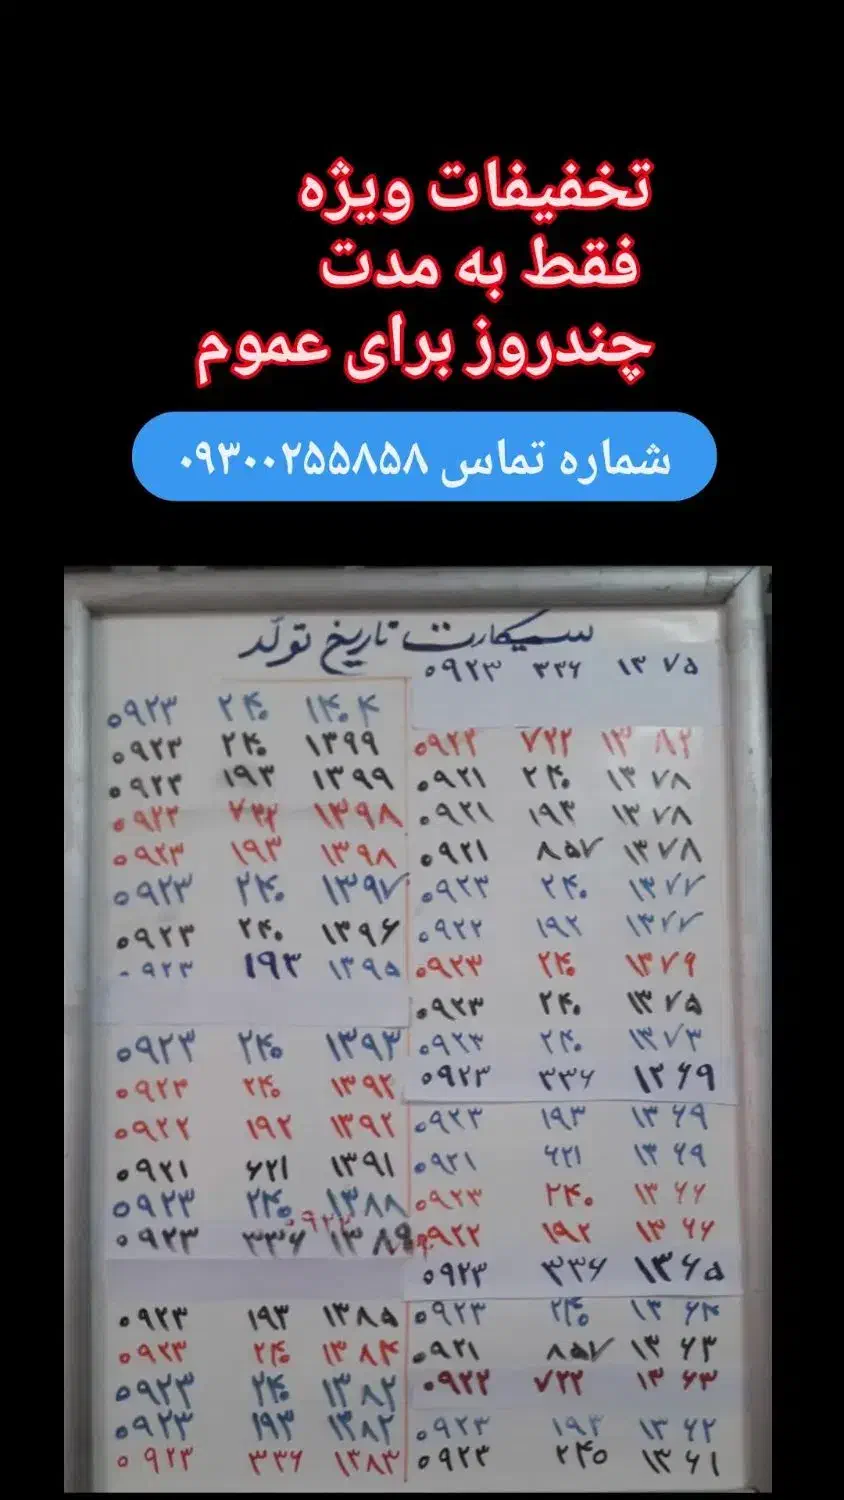 تخفیفات ویژه
فقط به مدت
چندروز برای عموم
شماره تماس ۰۹۳۰۰۲۵۵۸۵۸
سیمکارت تاریخ تولّد
۰۹۲۳ ۳۳۶ ۱۳۷۵
۰۹۲۲ ۷۲۲ ۱۳۸۲
۰۹۲۱ ۲۴۰ ۱۳۷۸
۰۹۲۱ ۱۹۳ ۱۳۷۸
۰۹۲۱ ۸۵۷ ۱۳۷۸
۰۹۲۳ ۲۴۰ ۱۳۷۷
۰۹۲۲ ۱۹۲ ۱۳۷۷
۰۹۲۳ ۲۴۰ ۱۳۷۶
۰۹۲۳ ۲۴۰ ۱۳۷۵
۰۹۲۳ ۲۴۰ ۱۳۷۳
۰۹۲۳ ۳۳۶ ۱۳۶۹
۰۹۲۳ ۱۹۳ ۱۳۶۹
۰۹۲۱ ۶۲۱ ۱۳۶۹
۰۹۲۳ ۲۴۰ ۱۳۶۶
۰۹۲۲ ۱۹۲ ۱۳۶۶
۰۹۲۳ ۳۳۶ ۱۳۶۵
۰۹۲۳ ۲۴۰ ۱۳۶۴
۰۹۲۱ ۸۵۷ ۱۳۶۳
۰۹۲۲ ۷۲۲ ۱۳۶۳
۰۹۲۳ ۱۹۳ ۱۳۶۲
۰۹۲۳ ۲۴۰ ۱۳۶۱
۰۹۲۳ ۲۴۰ ۱۴۰۴
۰۹۲۳ ۲۴۰ ۱۳۹۹
۰۹۲۳ ۱۹۳ ۱۳۹۹
۰۹۲۲ ۷۲۲ ۱۳۹۸
۰۹۲۳ ۱۹۳ ۱۳۹۸
۰۹۲۳ ۲۴۰ ۱۳۹۷
۰۹۲۳ ۲۴۰ ۱۳۹۶
۰۹۲۳ ۱۹۳ ۱۳۹۵
۰۹۲۳ ۲۴۰ ۱۳۹۳
۰۹۲۳ ۲۴۰ ۱۳۹۲
۰۹۲۲ ۱۹۲ ۱۳۹۲
۰۹۲۱ ۶۲۱ ۱۳۹۱
۰۹۲۳ ۲۴۰ ۱۳۸۸
۰۹۲۳ ۳۳۶ ۱۳۸۹
۰۹۲۳ ۱۹۳ ۱۳۸۵
۰۹۲۳ ۲۴۰ ۱۳۸۴
۰۹۲۳ ۲۴۰ ۱۳۸۲
۰۹۲۳ ۱۹۳ ۱۳۸۲
۰۹۲۳ ۳۳۶ ۱۳۸۳